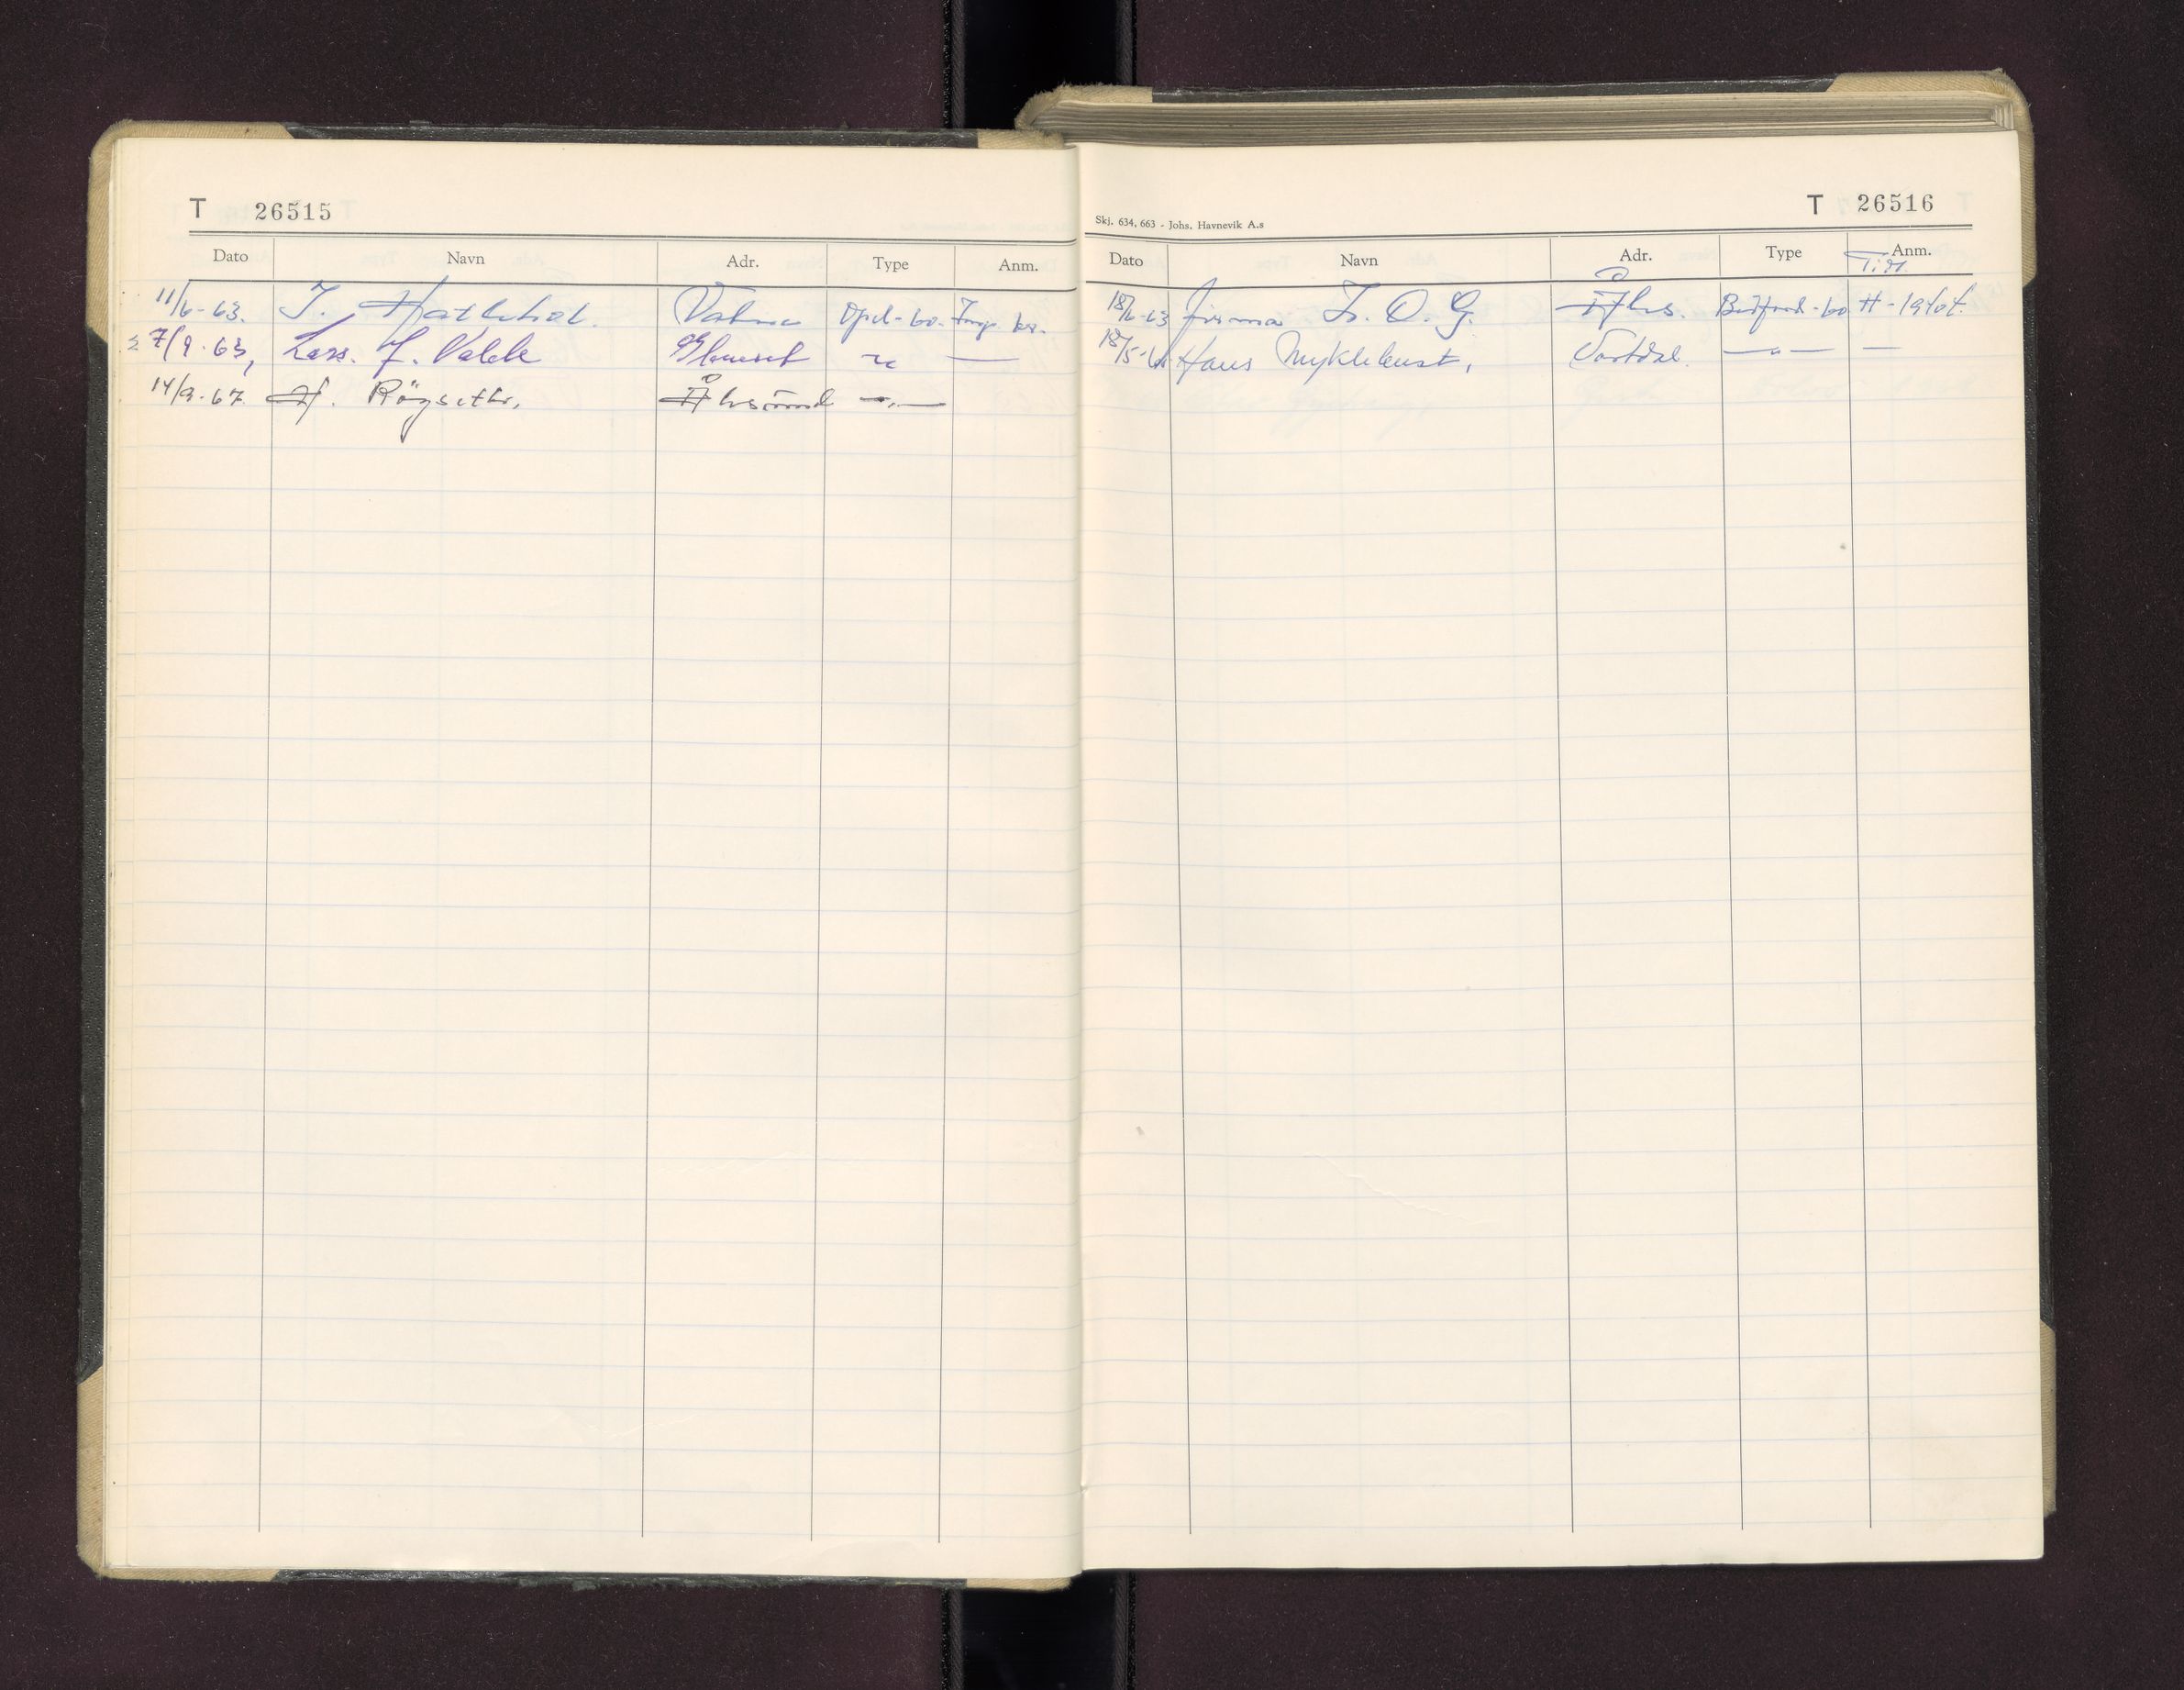 T 26515
Dato Navn Adr. Type Anm.
11/6-63. J. Hatlehol. Vatne Opel-60. Imp. kr.
27/9-63, Lars. J. Valde "
14/9-67 H. Röysethr, Åhrsund —„—
T 26516
Skj. 634, 663 - Johs. Havnevik A.s
Dato Navn Adr. Type Anm.
Tidl.
18/6-63 Firma I. O. G. Åhs. Bedford-60 H-19401.
18/5- Hans Myklebust, Vartdal. —„— —